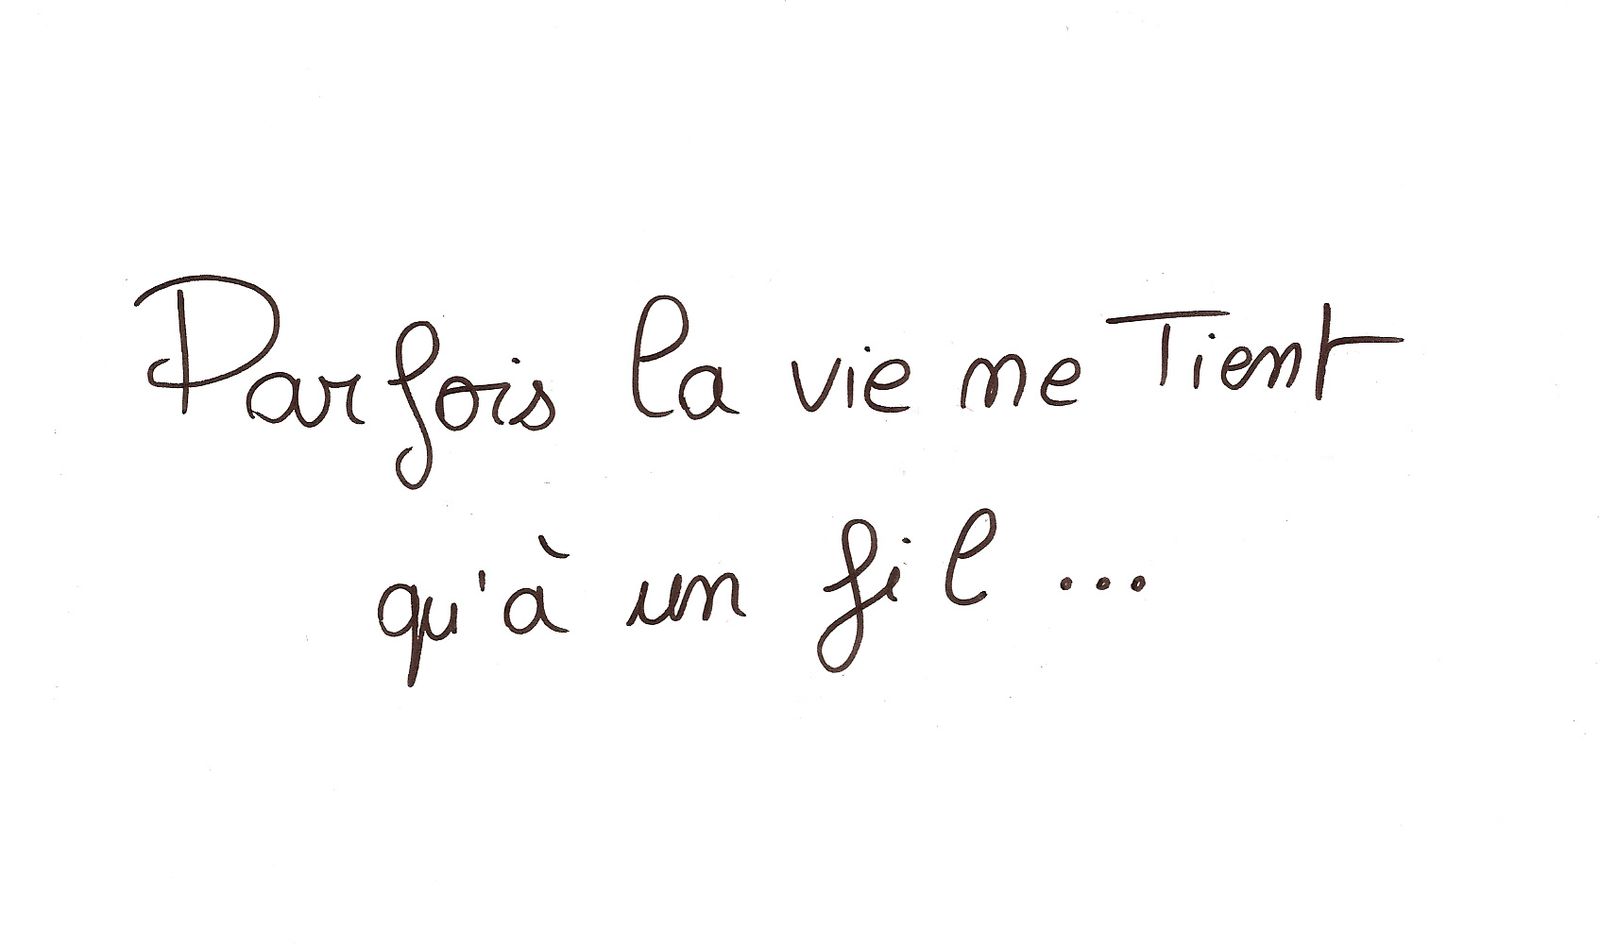 Parfois la vie ne Tient
qu'à un fil ...